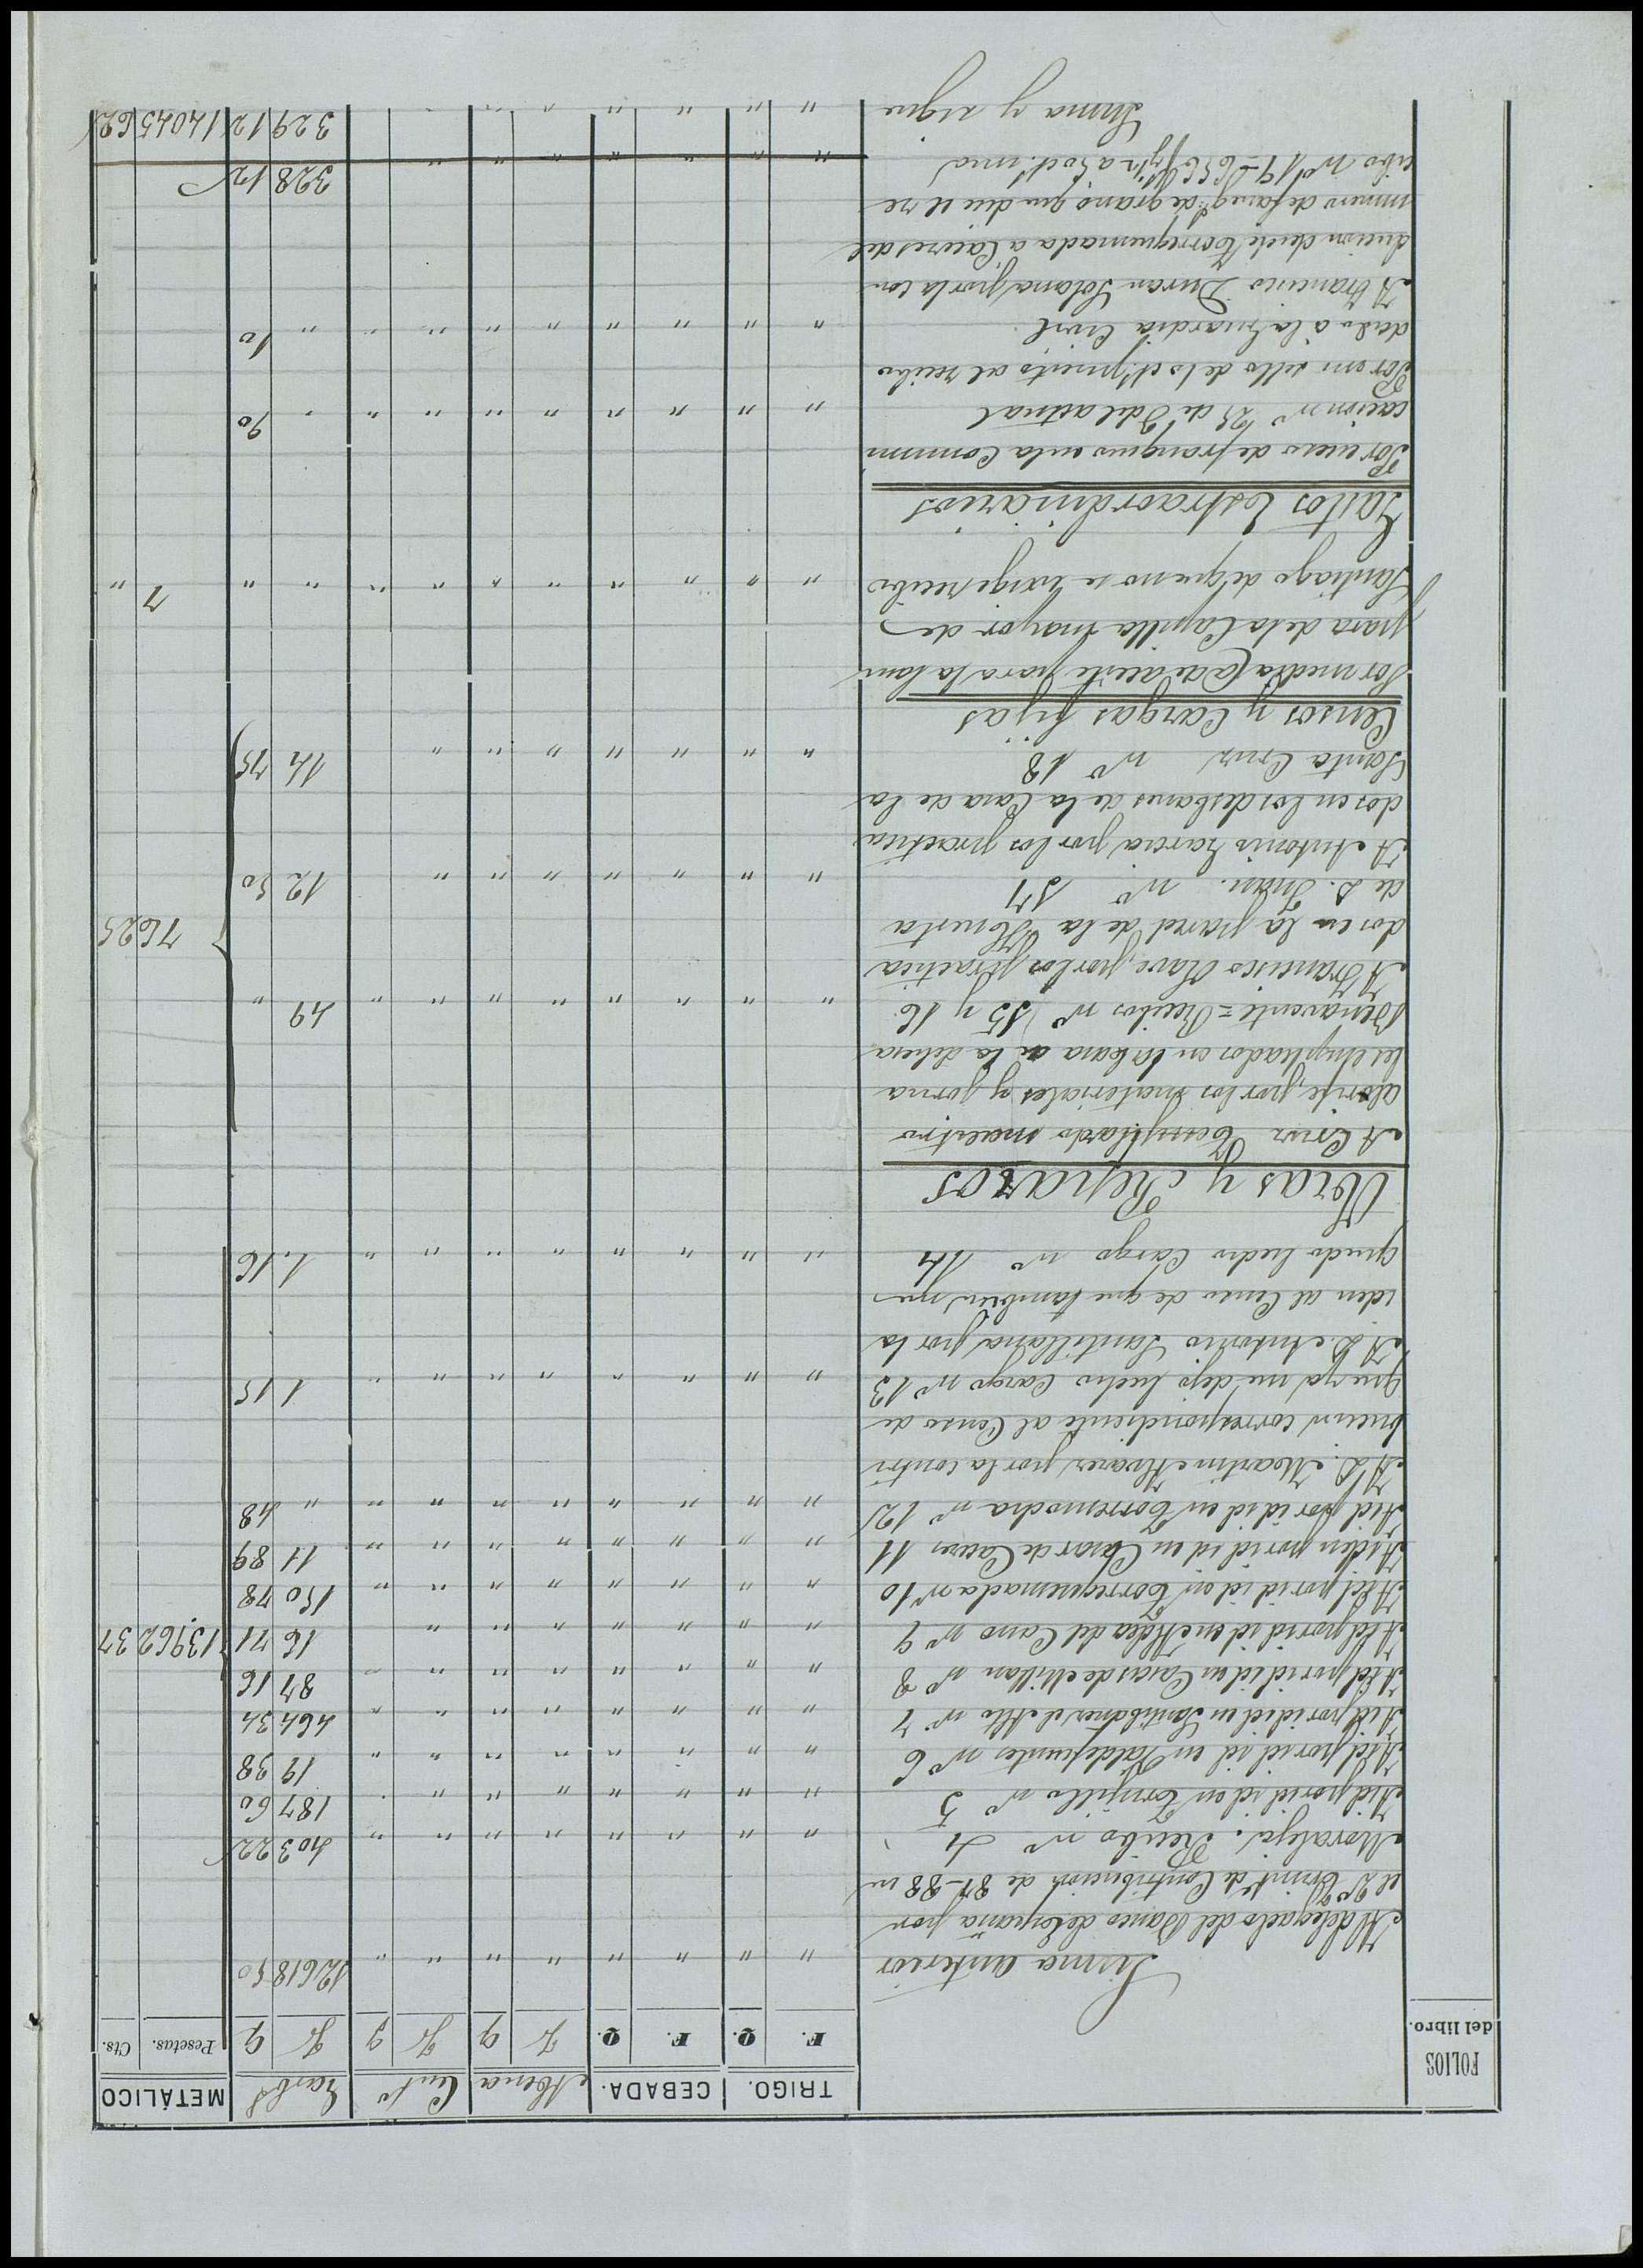 FOLIOS del libro. TRIGO. CEBADA. Abena Cent.o Garb.s METÁLICO
F. Q. F. Q. F Q F Q F Q Pesetas. Cts.
Suma anterior " " " " " " " " 12618 50
Al delegado del Banco de España por
el 2º Trimt.e de Contribucion de 87-88 en
Moraleja. Recibo nº 4 " " " " " " " " 403 22
A id por id id en Torrejillo nº 5 " " " " " " " " 187 60
A id por id id en Valdefuentes nº 6 " " " " " " " " 19 38
A id por id id en Santibañez el Alto nº 7 " " " " " " " " 464 34
A id por id id en Casas de Millan nº 8 " " " " " " " " 87 16
A id por id id en Aldea del Cano nº 9 " " " " " " " 16 71 13962 37
A id por id id en Torrequemada nº 10 " " " " " " " " 150 78
A iden por id id en Casar de Caceres 11 " " " " " " " " 11 89
A id por id id en Torremocha nº 12 " " " " " " " " " 48
A D. Martin Alvarez por la contri
bucion correspondiente al Censo de
que ya me dejo hecho Cargo nº 13 " " " " " " " " 1 15
A D. Antonio Santillana por la
iden al Censo de que tambien me
quedo hecho Cargo nº 14 " " " " " " " " 1.16
Obras y Reparos
A Cruz Templado maestro
alarife, por los materiales y jorna
les empleados en la casa de la dehesa
Benavente = Recibos nº 15 y 16 " " " " " " " " 49 "
A Francisco Clavo, por los practica
dos en la pared de la Huerta
de D. Juan. nº 17 " " " " " " " 12 50 76 25
A Antonio Garcia por los practica
dos en los desbanes de la Casa de la
Santa Cruz nº 18 " " " " " " " 14 75
Censos y Cargas fijas
Por media @ de aceite para la lam
para de la Capilla mayor de
Santiago de que no se exige recibo " " " " " " " " " " 7 "
Gastos Estraordinarios
Por exceso de franqueo en la Comuni
cacion nº 25 de 3 del actual " " " " " " " " " 90
Por un sello de 10 ct.s puesto al recibo
dado a la Guardia Civil. " " " " " " " " " 10
A Francisco Duran Solana por la con
duccion desde Torrequemada a Caceres del
numero de faneg.s de grano que dice el re
cibo nº 19 = " " " " " " " " 328 12
Suma y sigue " " " " " " " " 329 12 14045 62